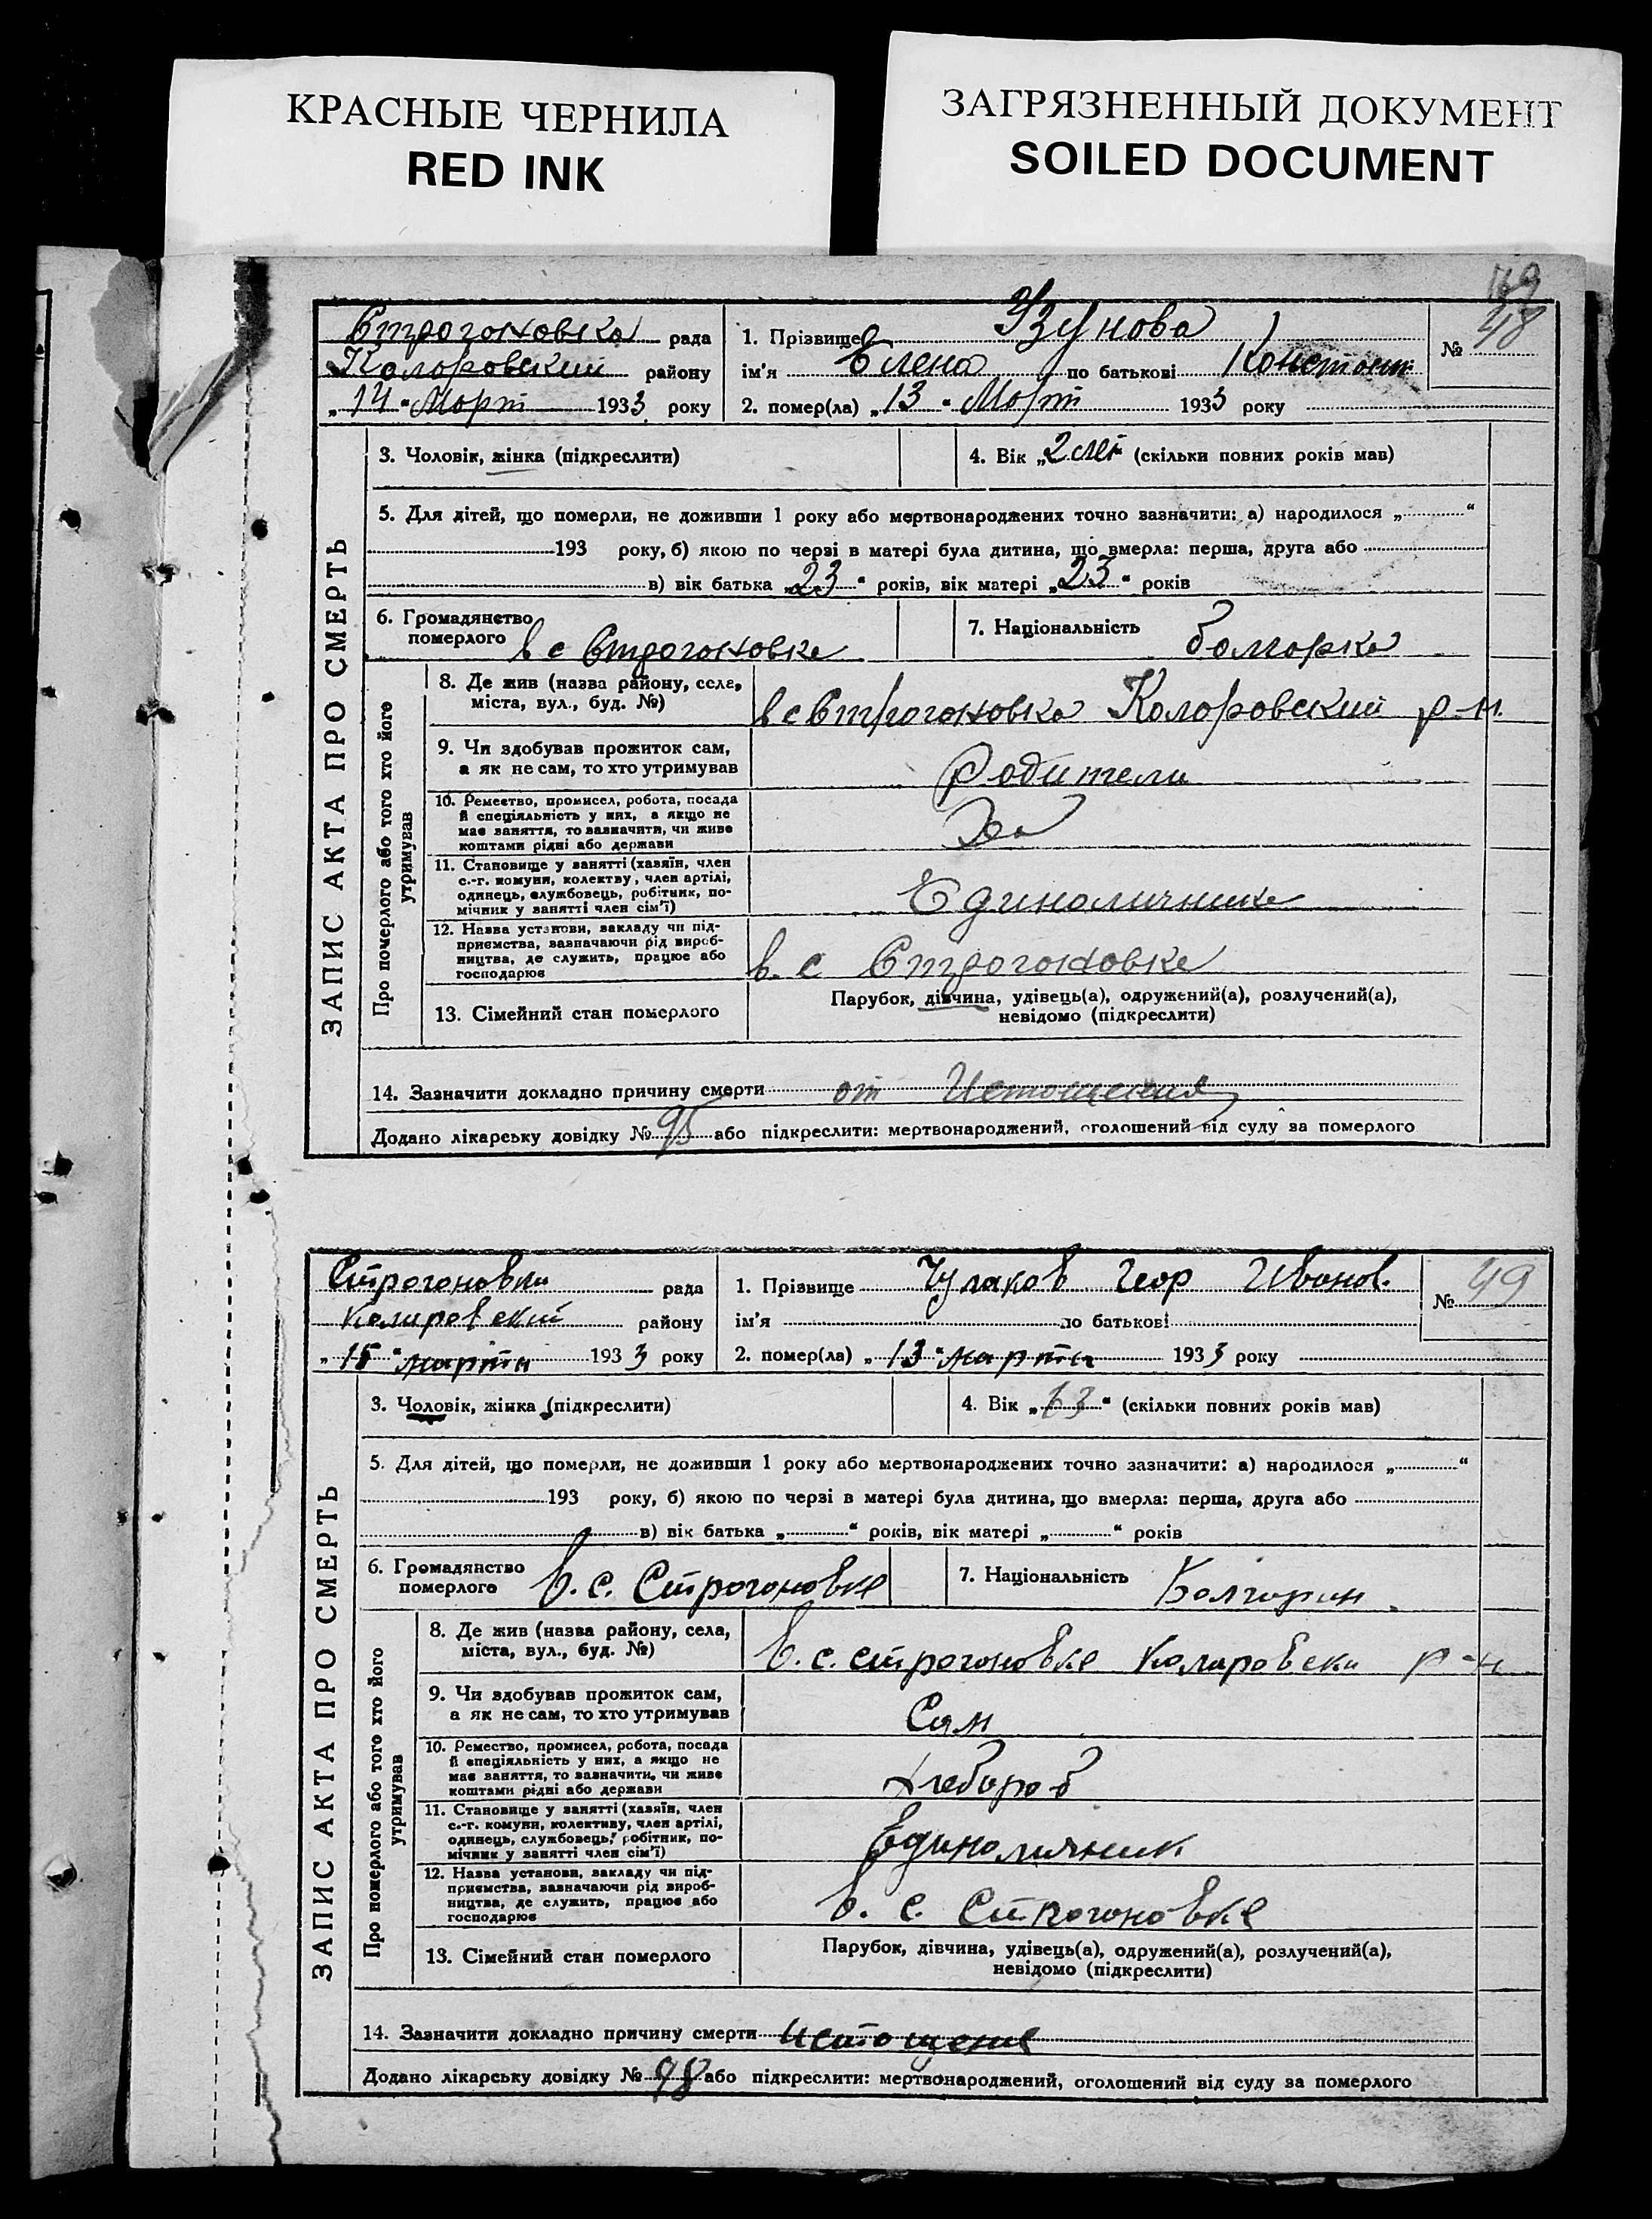 КРАСНЫЕ ЧЕРНИЛА
RED INK
ЗАГРЯЗНЕННЫЙ ДОКУМЕНТ
SOILED DOCUMENT
ЗАПИС АКТА ПРО СМЕРТЬ
Строгоновка рада
Коларовский району
„14“ Март 1933 року
1. Прізвище Узунова
ім'я Елена по батькові Констант
2. помер(ла) „13“ Март 1933 року
№ 48
3. Чоловік, жінка (підкреслити)
4. Вік „2 лет“ (скільки повних років мав)
5. Для дітей, що померли, не доживши 1 року або мертвонароджених точно зазначити: а) народилося „ “
193 року, б) якою по черзі в матері була дитина, що вмерла: перша, друга або
в) вік батька „23“ років, вік матері „23“ років
6. Громадянство
померлого в с Строгоновке
7. Національність болгарка
Про померлого або того хто його
утримував
8. Де жив (назва району, села,
міста, вул., буд. №)
в с Строгоновка Коларовский р-н.
9. Чи здобував прожиток сам,
а як не сам, то хто утримував
Родители
10. Ремество, промисел, робота, посада
й спеціяльність у них, а якщо не
має заняття, то зазначити, чи живе
коштами рідні або держави
11. Становище у занятті (хазяїн, член
с.-г. комуни, колектву, член артілі,
одинець, службовець, робітник, по-
мічник у занятті член сім'ї)
Единоличник
12. Назва установи, закладу чи під-
приємства, зазначаючи рід вироб-
ництва, де служить, працює або
господарює
в. с Строгоновке
13. Сімейний стан померлого
Парубок, дівчина, удівець(а), одружений(а), розлучений(а),
невідомо (підкреслити)
14. Зазначити докладно причину смерти от Истощения
Додано лікарську довідку № 95 або підкреслити: мертвонароджений, оголошений від суду за померлого
ЗАПИС АКТА ПРО СМЕРТЬ
Строгоновки рада
Коларовский району
„15“ марта 1933 року
1. Прізвище Чулаков Геор Иванов.
ім'я по батькові
2. помер(ла) „13“ марта 1933 року
№ 49
3. Чоловік, жінка (підкреслити)
4. Вік „63“ (скільки повних років мав)
5. Для дітей, що померли, не доживши 1 року або мертвонароджених точно зазначити: а) народилося „ “
193 року, б) якою по черзі в матері була дитина, що вмерла: перша, друга або
в) вік батька „ “ років, вік матері „ “ років
6. Громадянство
померлого в. с. Строгоновке
7. Національність Болгарин.
Про померлого або того хто його
утримував
8. Де жив (назва району, села,
міста, вул., буд. №)
в. с. строгоновке Коларовски р-н
9. Чи здобував прожиток сам,
а як не сам, то хто утримував
Сам
10. Ремество, промисел, робота, посада
й спеціяльність у них, а якщо не
має заняття, то зазначити, чи живе
коштами рідні або держави
Хлебороб
11. Становище у занятті (хазяїн, член
с.-г. комуни, колективу, член артілі,
одинець, службовець, робітник, по-
мічник у занятті член сім'ї)
Единоличник
12. Назва установи, закладу чи під-
приємства, зазначаючи рід вироб-
ництва, де служить, працює або
господарює
в. с. Строгоновке
13. Сімейний стан померлого
Парубок, дівчина, удівець(а), одружений(а), розлучений(а),
невідомо (підкреслити)
14. Зазначити докладно причину смерти истощение
Додано лікарську довідку № 98 або підкреслити: мертвонароджений, оголошений від суду за померлого